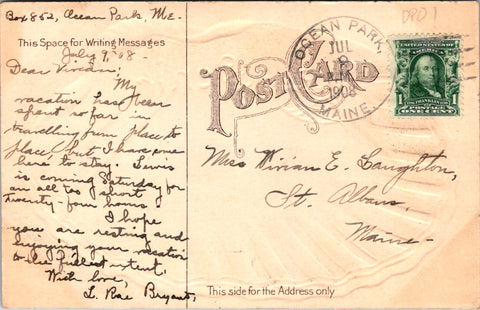 Box 852, Ocean Park, ME.
This Space for Writing Messages
July 9, '08.
Dear Vivian:
My
vacation has been
spent so far in
travelling from place to
place, but I have come
here to stay. Lewis
is coming Saturday for
an all too short
twenty-four hours.
I hope
you are resting and
enjoying your vacation
to the fullest extent.
With love,
L. Rae Bryant.
POST CARD
OCEAN PARK,
JUL
9
1908
MAINE.
DPO 1
UNITED STATES OF AMERICA
1
FRANKLIN
POSTAGE
ONE CENT
Miss Vivian E. Laughton,
St. Albans,
Maine-
This side for the Address only